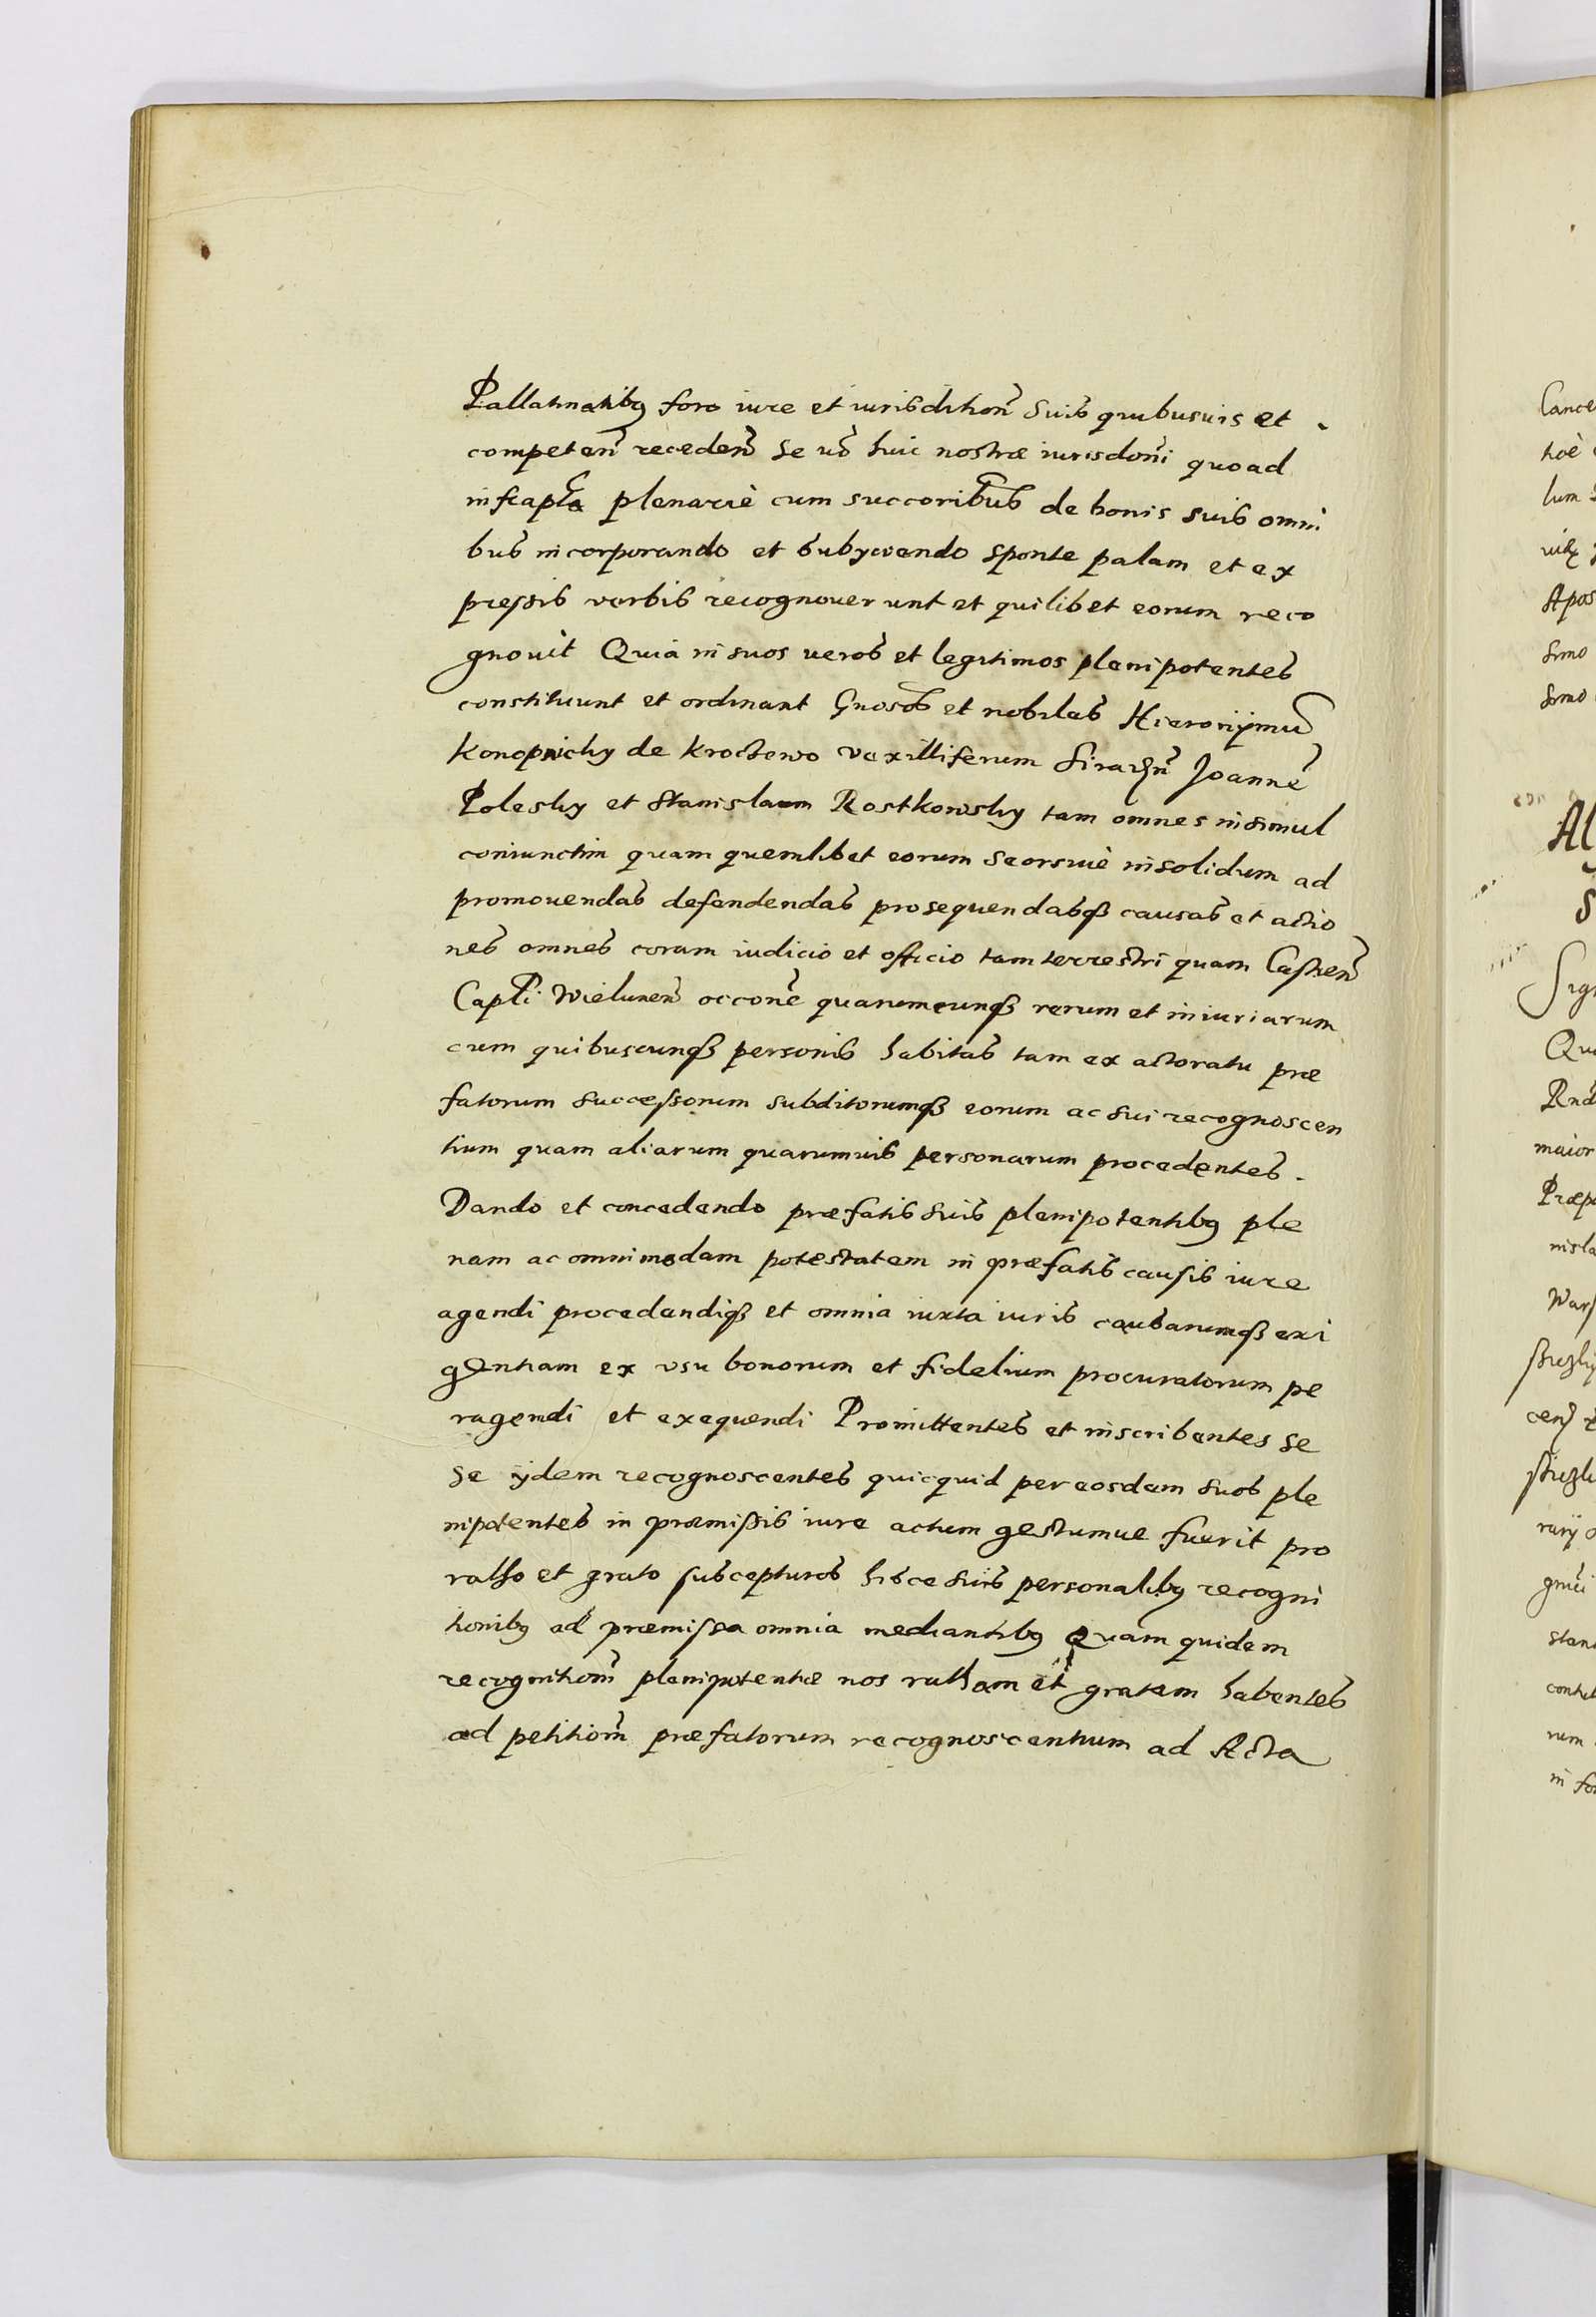 Pallatinatibꝫ foro iure et iurisditioñ suis quibusuis et
competeñ recedeñ se vō huic nostræ iurisdoñi quo ad
infrapta plenariè cum succoribus de bonis suis omni
bus incorporando et subÿciendo sponte palam et ex
pressis verbis recognouerunt et quilibet eorum reco
gnouit Quia in suos veros et legitimos plenipotentes
constituunt et ordinant Gnosos et nobiles Hieronÿmū
Konopnicky de Krochewo vexilliferum Siradzn̄ Joannē
Polesky et Stanislaum Rostkowsky tam omnes insimul
coniunctim quam quemlibet eorum seorsiuè insolidum ad
promouendas defendendas prosequendasqȝ causas et actio
nes omnes coram iudicio et officio tam terrestri quam Castreñ
Capli Wieluneñ occonē quarumcunqȝ rerum et iniuriarum
cum quibuscunqȝ personis habitas tam ex actoratu præ
fatorum successorum subditorumqȝ eorum ac sui recognoscen
tium quam aliarum quarumuis personarum procedentes.
Dando et concedendo præfatis suis plenipotentibꝫ ple
nam ac omnimodam potestatem in præfatis causis iure
agendi procedendiqȝ et omnia iuxta iuris causarumqȝ exi
gentiam ex vsu bonorum et fidelium procuratorum pe
ragendi et exequendi Promittentes et inscribentes se
se ÿdem recognoscentes quicquid per eosdem suos ple
nipotentes in præmissis iure actum gestumue fuerit pro
ratho et grato suscepturos hisce suis personalibꝫ recogni
tionibꝫ ad præmissa omnia mediantibꝫ Quam quidem
recognitiom̄ plenipotentiæ nos ratham et gratam habentes
ad petitiom̄ præfatorum recognoscentium ad Acta